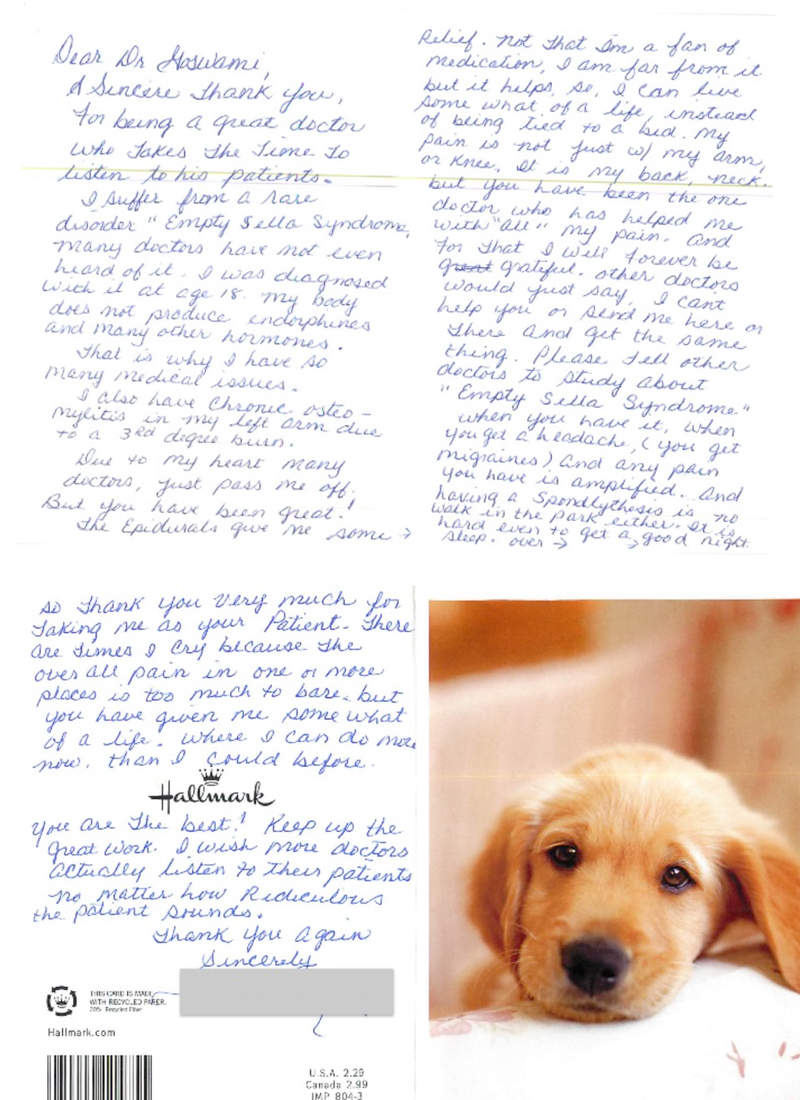 Dear Dr Goswami,
A Sincere Thank you,
For being a great doctor
who Takes The Time To
listen to his patients.
I suffer from a rare
disorder "Empty Sella Syndrome,
many doctors have not even
heard of it. I was diagnosed
with it at age 18. My body
does not produce endorphines
and many other hormones.
That is why I have so
many medical issues.
I also have Chronic osteo-
mylitis in my left arm due
to a 3rd degree burn.
Due to my heart many
doctors, just pass me off.
But you have been great!
The Epidurals give me some →
Relief. Not That I'm a fan of
medication, I am far from it
but it helps, so, I can live
some what of a life, instead
of being tied to a bid. My
pain is not just w/ my arm,
or knee. It is my back, neck.
but you have been the one
doctor who has helped me
with "all" my pain. And
For That I will Forever be
great grateful. other doctors
would just say, I cant
help you or send me here or
There and get the same
thing. Please Tell other
doctors to study about
"Empty Sella Syndrome"
when you have it, when
you get a headache, (you get
migraines) and any pain
you have is amplified. And
having a Spondlythesis is no
walk in the park either. It is
hard even to get a good night
sleep. over →
so Thank you Very much for
Taking me as your Patient. There
are Times I Cry because The
over all pain in one or more
places is too much to bare. but
you have given me some what
of a life. where I can do more
now. than I could before.
Hallmark
You are The best! Keep up the
great work. I wish more doctors
actually listen to their patients
no matter how Ridiculous
the patient sounds.
Thank You Again
Sincerely
THIS CARD IS MADE
WITH RECYCLED PAPER.
20% Recycled Fiber
Hallmark.com
U.S.A. 2.29
Canada 2.99
IMP 804-3